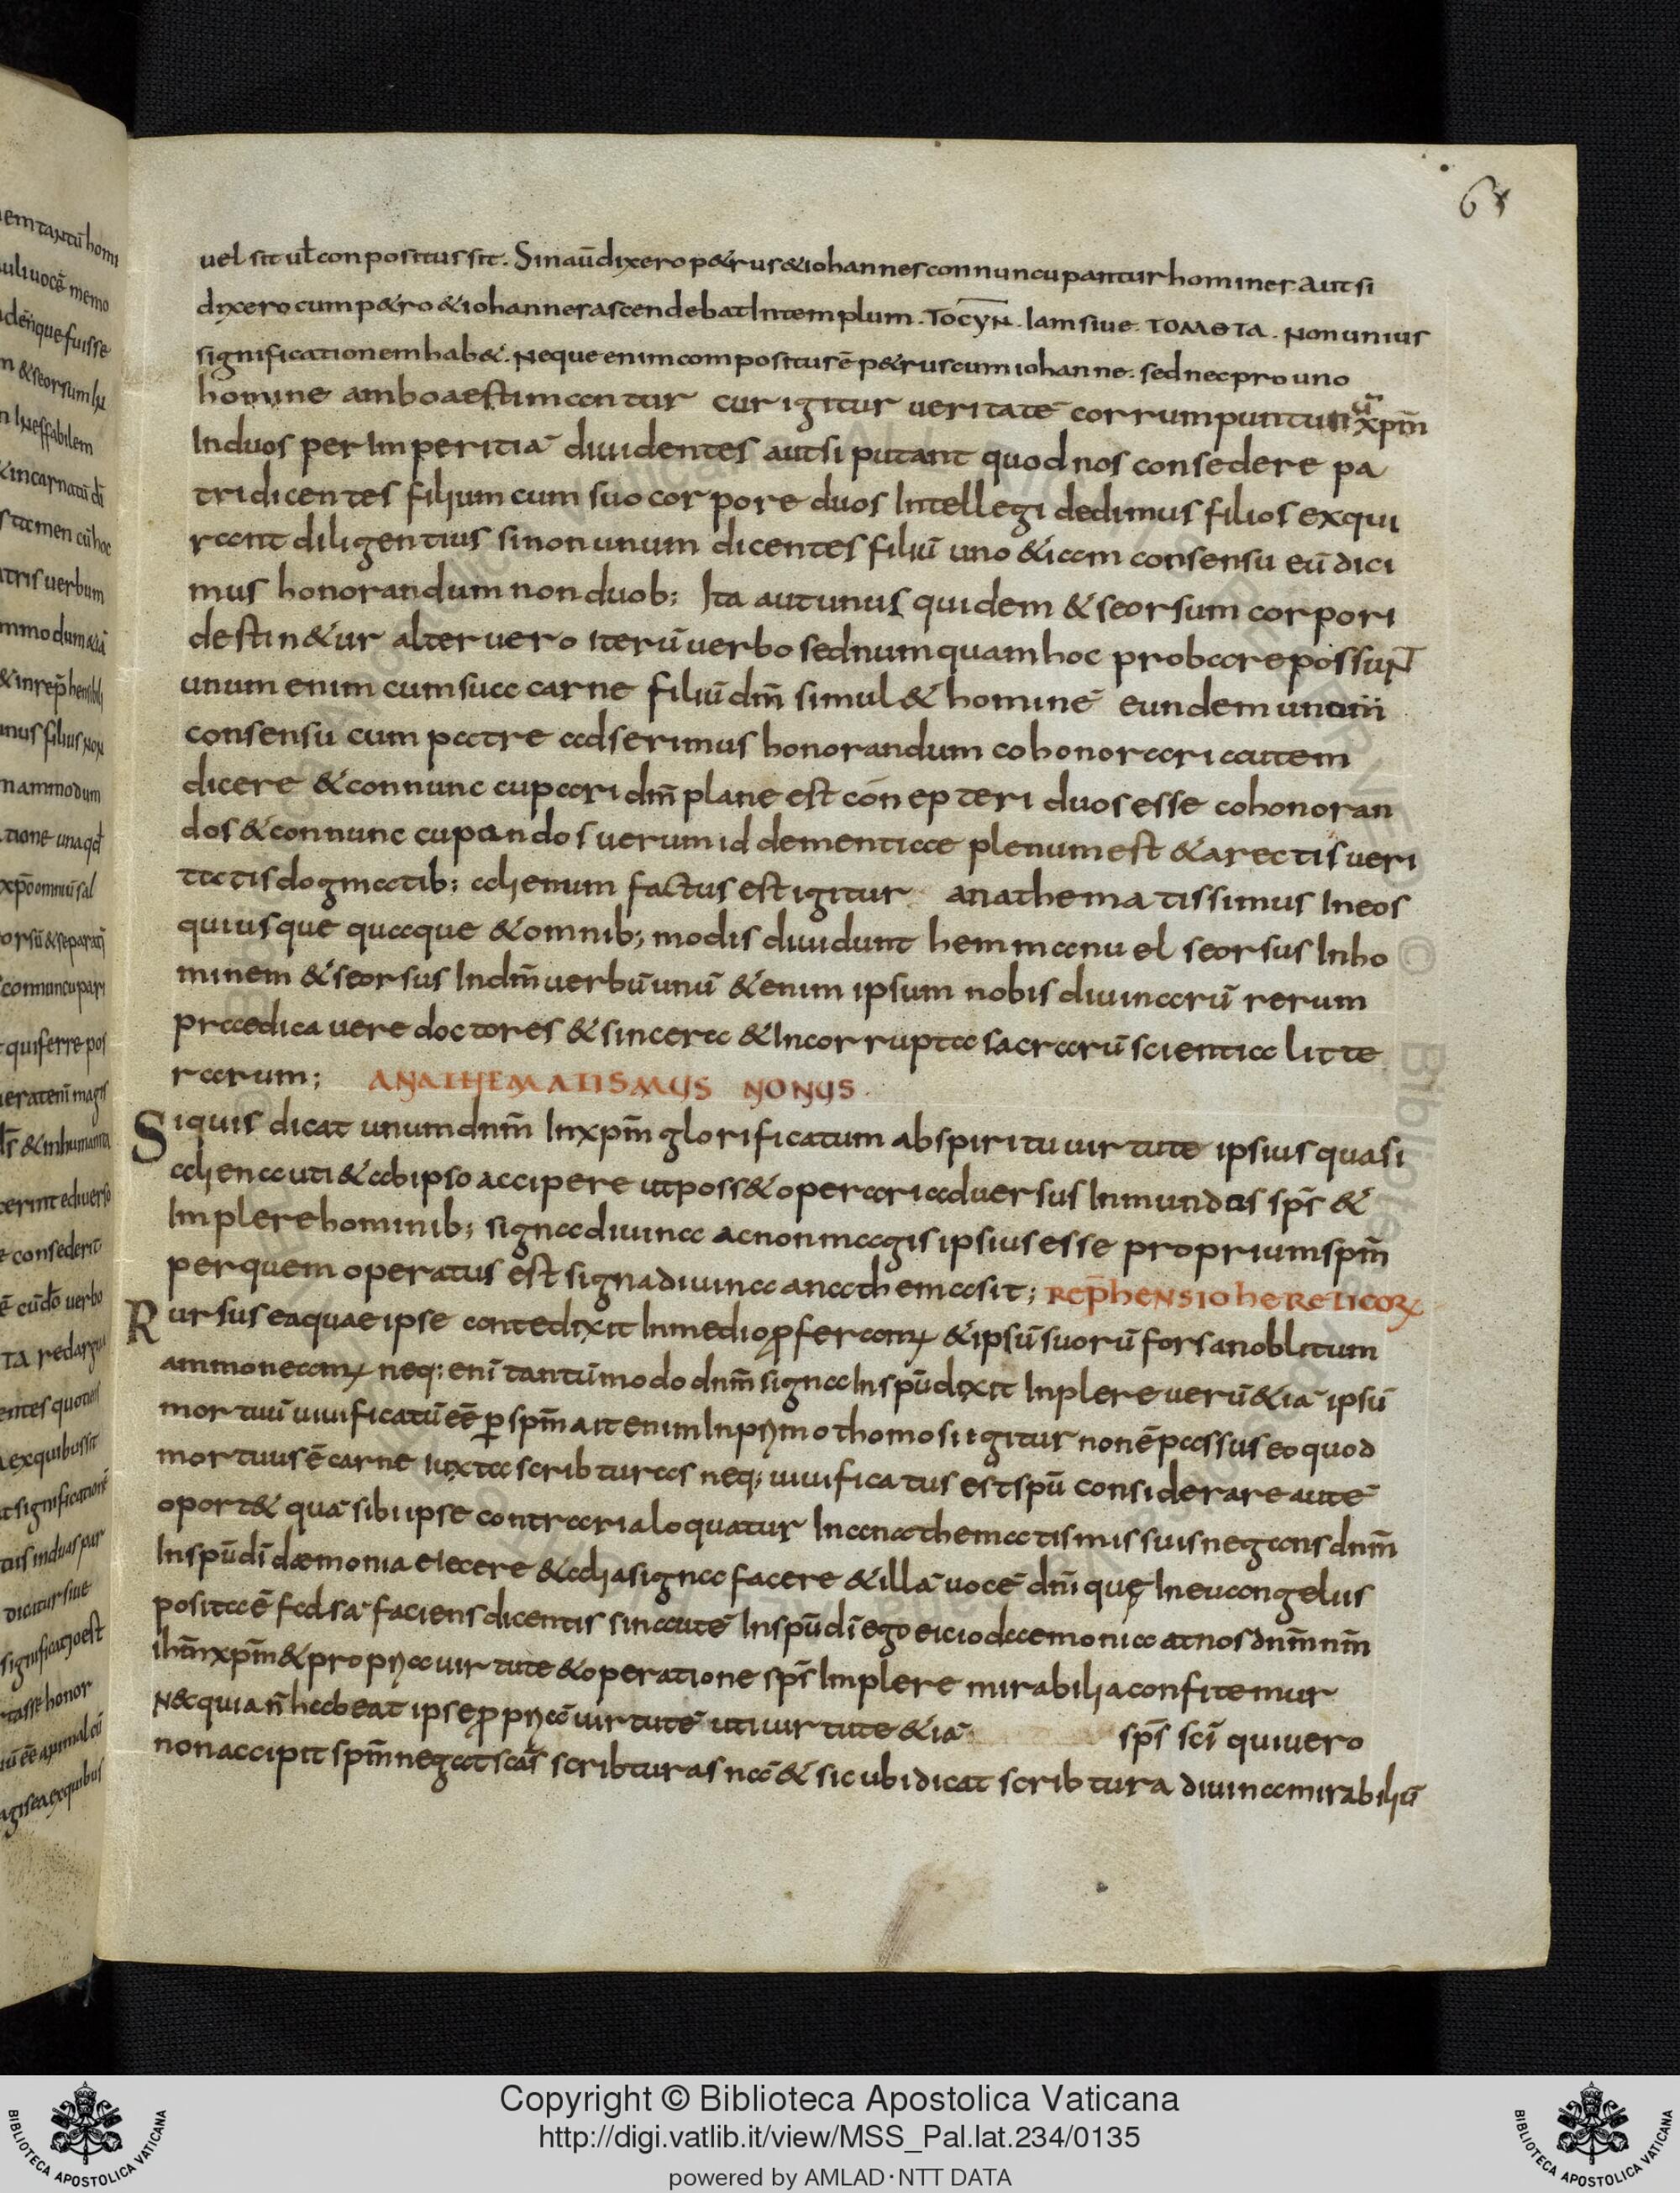 64
uel sit ul̄ conpositus sit. Sin aū dixero p&rus & iohannes connuncupantur homines. Aut si
dixero cum p&ro & iohannes ascendebat In templum. TOCYN. Iam siue. TOMETA. Non unius
significationem hab&. Neque enim compositus ē p&rus cum iohanne. sed nec pro uno
homine ambo aestimantur cur igitur ueritatē corrumpuntur xp̄m
In duos per Imperitiā diuidentes aut si putant quod nos consedere pa
tri dicentes filium cum suo corpore duos Intellegi dedimus filios exqui
rant diligentius si non unum dicentes filiū uno & iam consensu eū dici
mus honorandum non duob; Ita aut unus quidem & seorsum corpori
destin&ur alter uero iterū uerbo sed numquam hoc probare possunt
unum enim cum sua carne filiū dm̄ simul & hominē eundem
consensu cum patre adserimus honorandum cohonorari autem
dicere & connuncupari dm̄ plane est duos esse cohonoran
dos & connuncupandos uerum id dementiae plenum est & a rectis ueri
tatis dogmatib; alienum factus est igitur anathematissimus In eos
qui usquequaque & omnib; modis diuidunt hemmanuel seorsus In ho
minem & seorsus In dm̄ uerbū unū & enim ipsum nobis diuinarū rerum
praedicauere doctores & sincera & Incorrupta sacrarū scientia litte
rarum; ANATHEMATISMUS NONUS.
Si quis dicat unum dnm̄ Inxpm̄ glorificatum ab spiritu uirtute ipsius quasi
aliena uti & ab ipso accipere ut poss& operari aduersus Inmundos sps̄ &
Implere hominib; signa diuina ac non magis ipsius esse proprium spm̄
per quem operatus est signa diuina anathema sit; REP̄HENSIO HERETICOR
Rursus ea quae ipse contedixit In medio ꝓferam & ipsū suorū forsan oblitum
ammoneam neq; enī tantūmodo dnm̄ signa In spū dixit Inplere uerū & iā ipsū
mortuū uiuificatū eē ꝑ spm̄ ait enim In psymo thomo si igitur non ē passus eo quod
mortuus ē carne iuxta scribturas neq; uiuificatus est spū considerare autē
oport& quā sibi ipse contraria loquatur In anathematismis suis negans dnm̄
In spū dī daemonia eiecere & alia signa facere & illā uocē dnī quę In euangeliis
posita ē falsā faciens dicentis sin autē In spū dī ego eicio daemonia at nos dnm̄ nm̄
ihm̄ xpm̄ & propria uirtute & operatione sps̄ Implere mirabilia confitemur
N& quia n̄ habeat ipse ꝓpriā uirtutē uti uirtute & iā sps̄ scī qui uero
non accipit spm̄ negat scas̄ scribturas nā & sicubi dicat scribtura diuina mirabiliū
Copyright © Biblioteca Apostolica Vaticana
http://digi.vatlib.it/view/MSS_Pal.lat.234/0135
powered by AMLAD·NTT DATA
BIBLIOTECA APOSTOLICA VATICANA
BIBLIOTECA APOSTOLICA VATICANA